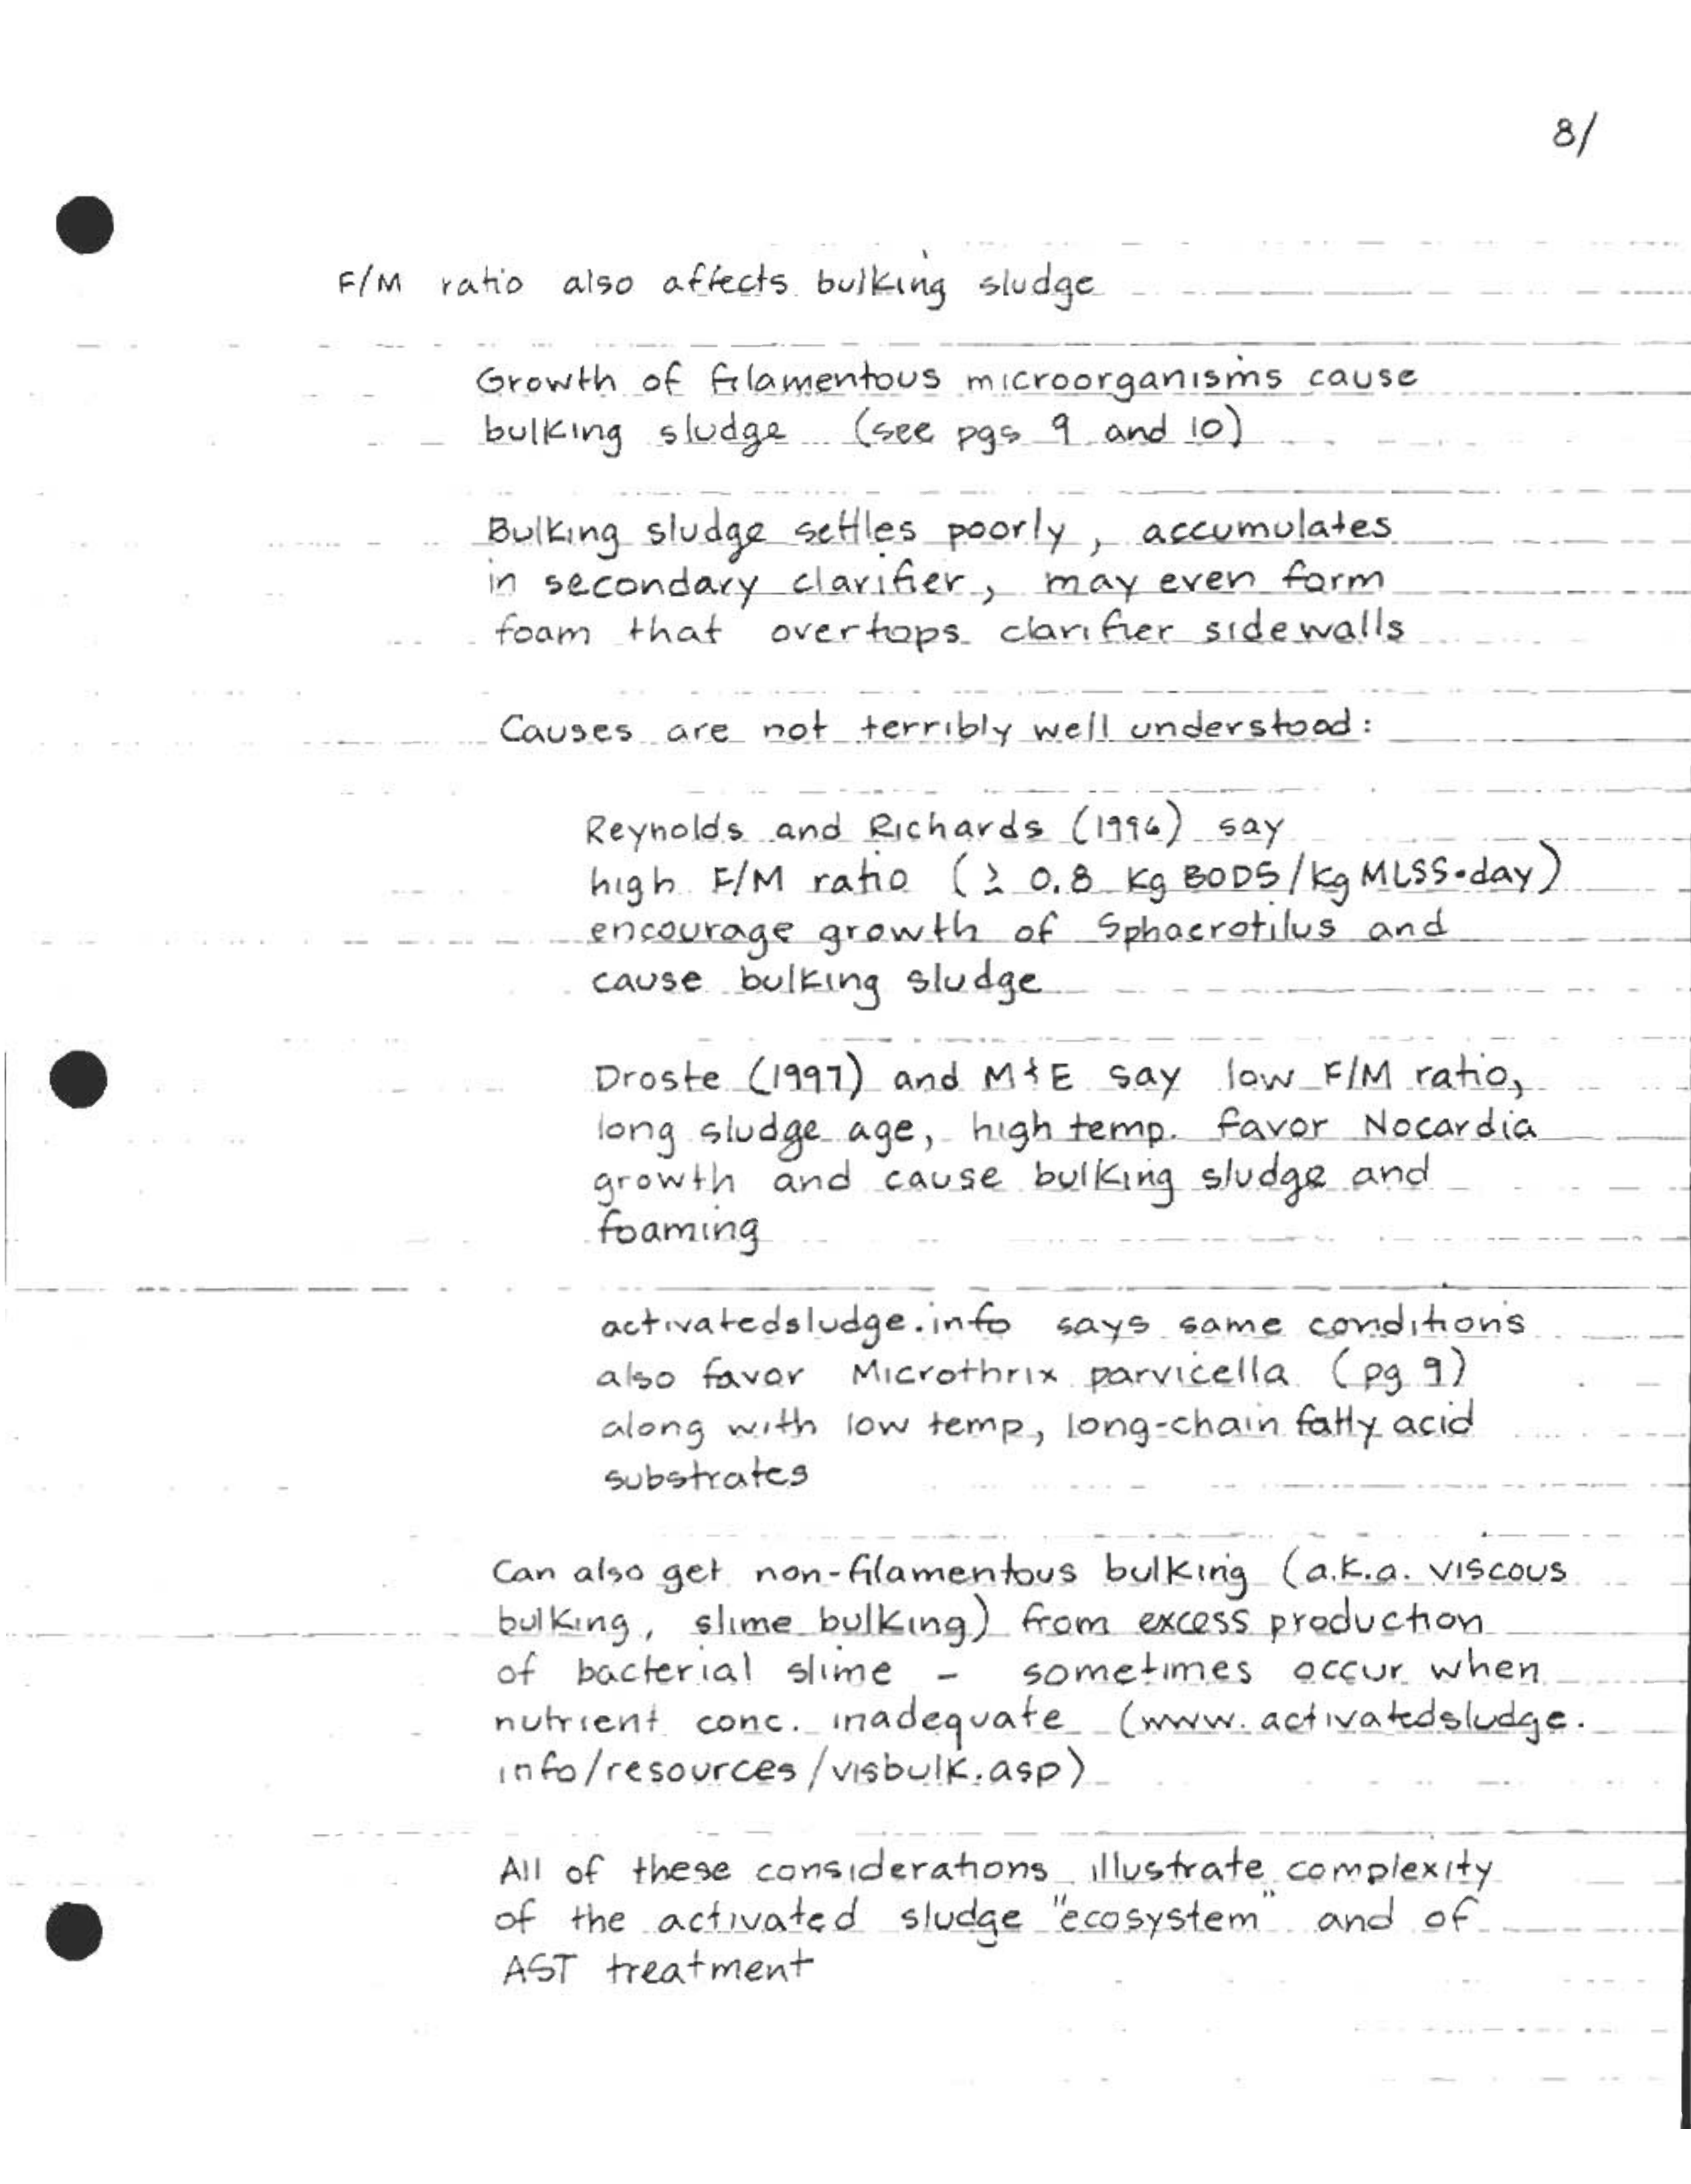 8/
F/M ratio also affects bulking sludge
Growth of filamentous microorganisms cause
bulking sludge (see pgs 9 and 10)
Bulking sludge settles poorly, accumulates
in secondary clarifier, may even form
foam that overtops clarifier sidewalls
Causes are not terribly well understood:
Reynolds and Richards (1996) say
high F/M ratio (≥ 0.8 kg BOD5/kg MLSS•day)
encourage growth of Sphaerotilus and
cause bulking sludge
Droste (1997) and M&E say low F/M ratio,
long sludge age, high temp. favor Nocardia
growth and cause bulking sludge and
foaming
activatedsludge.info says same conditions
also favor Microthrix parvicella (pg 9)
along with low temp, long-chain fatty acid
substrates
Can also get non-filamentous bulking (a.k.a. viscous
bulking, slime bulking) from excess production
of bacterial slime - sometimes occur when
nutrient conc. inadequate (www.activatedsludge.
info/resources/visbulk.asp)
All of these considerations illustrate complexity
of the activated sludge "ecosystem" and of
AST treatment